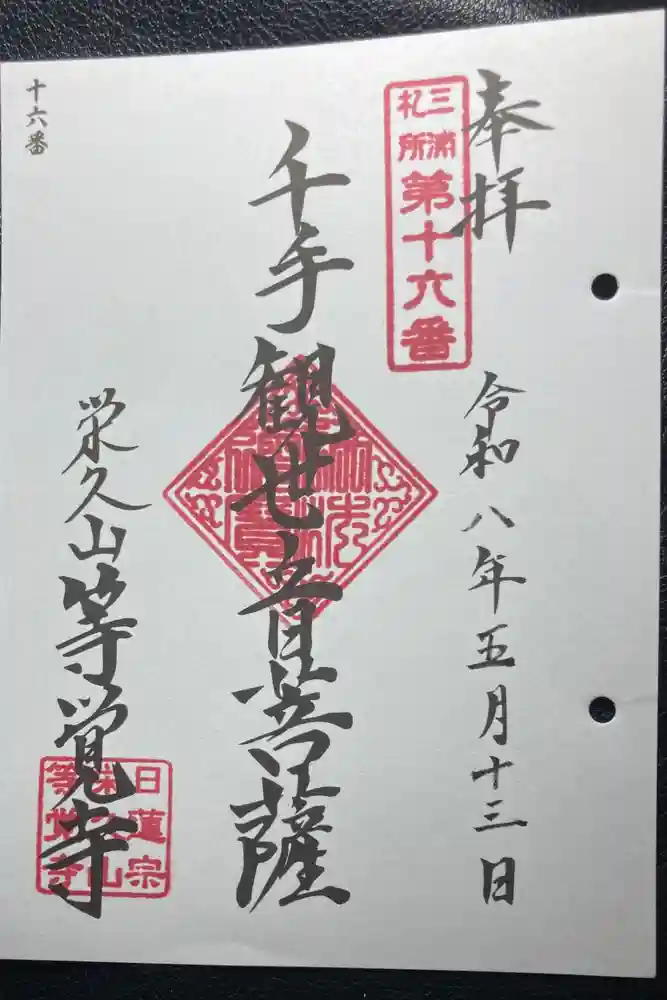 奉拝
三浦
札所
第十六番
令和八年五月十三日
千手観世音菩薩
栄久山等覚寺
日蓮宗
栄久山
等覚寺
十六番